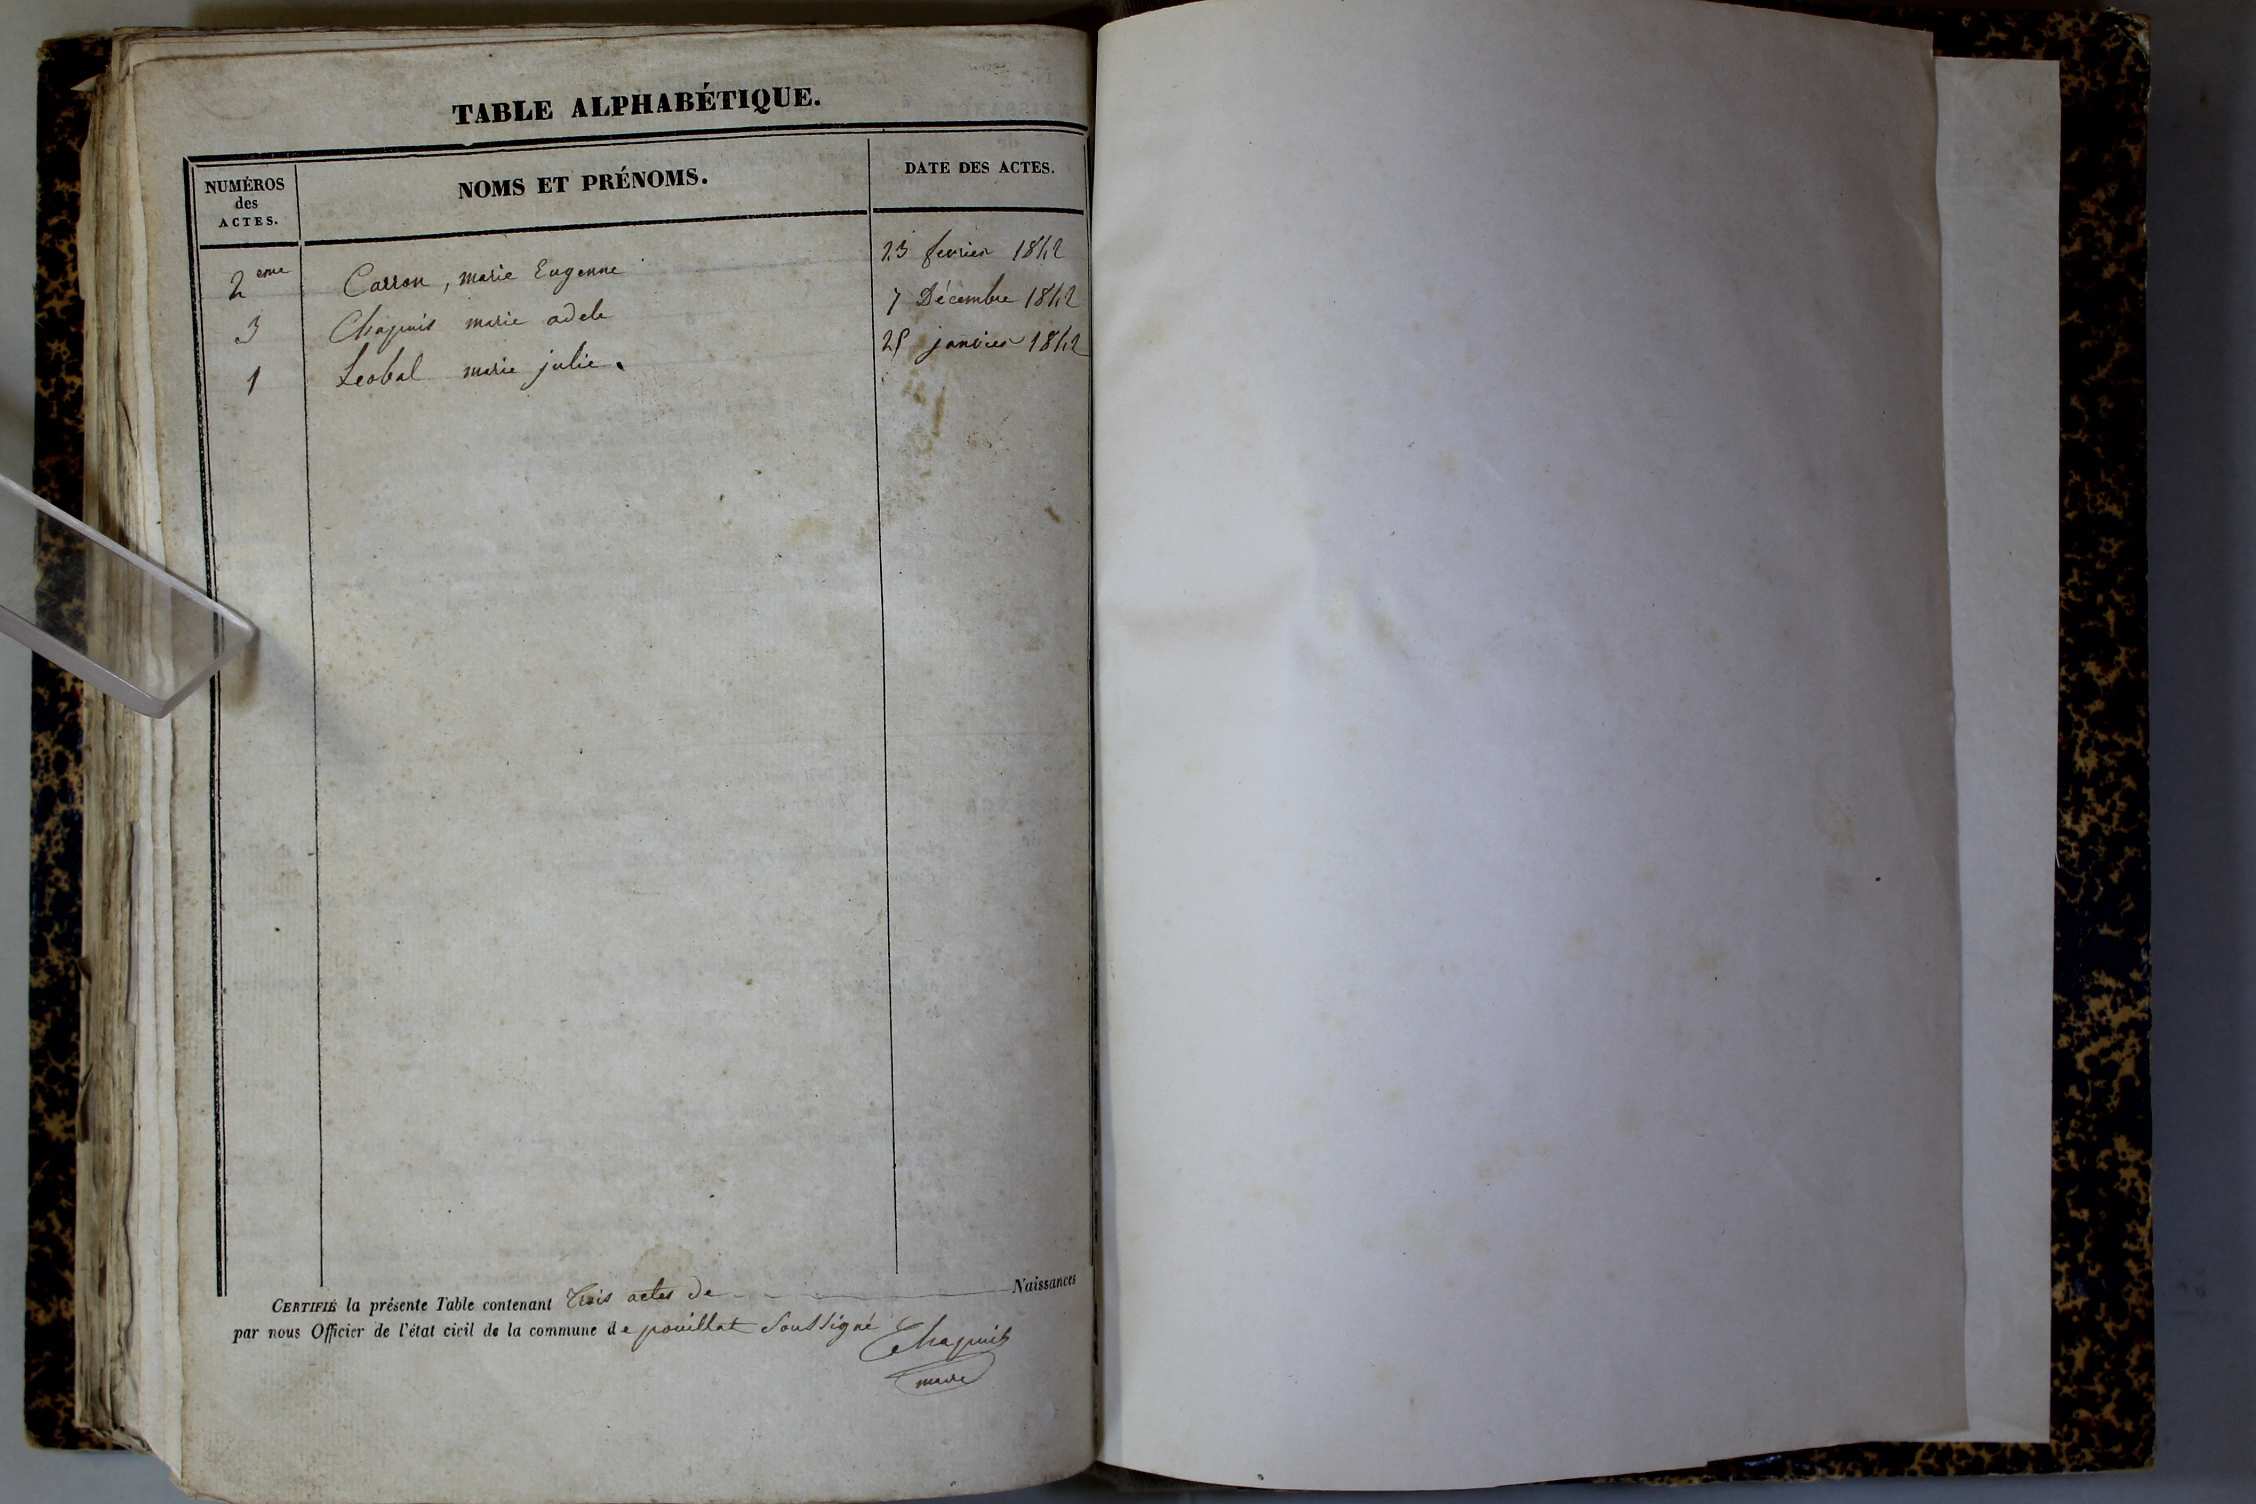 TABLE ALPHABÉTIQUE.
NUMÉROS
des
ACTES.
NOMS ET PRÉNOMS.
DATE DES ACTES.
2eme Carron, marie Eugenne 23 fevrier 1842
3 Chapuis marie adele 7 Décembre 1842
1 Leobal marie julie. janvier 1842
CERTIFIÉ la présente Table contenant trois actes de Naissances
par nous Officier de l'état civil de la commune de pouillat Soussigné
Chapuis
maire